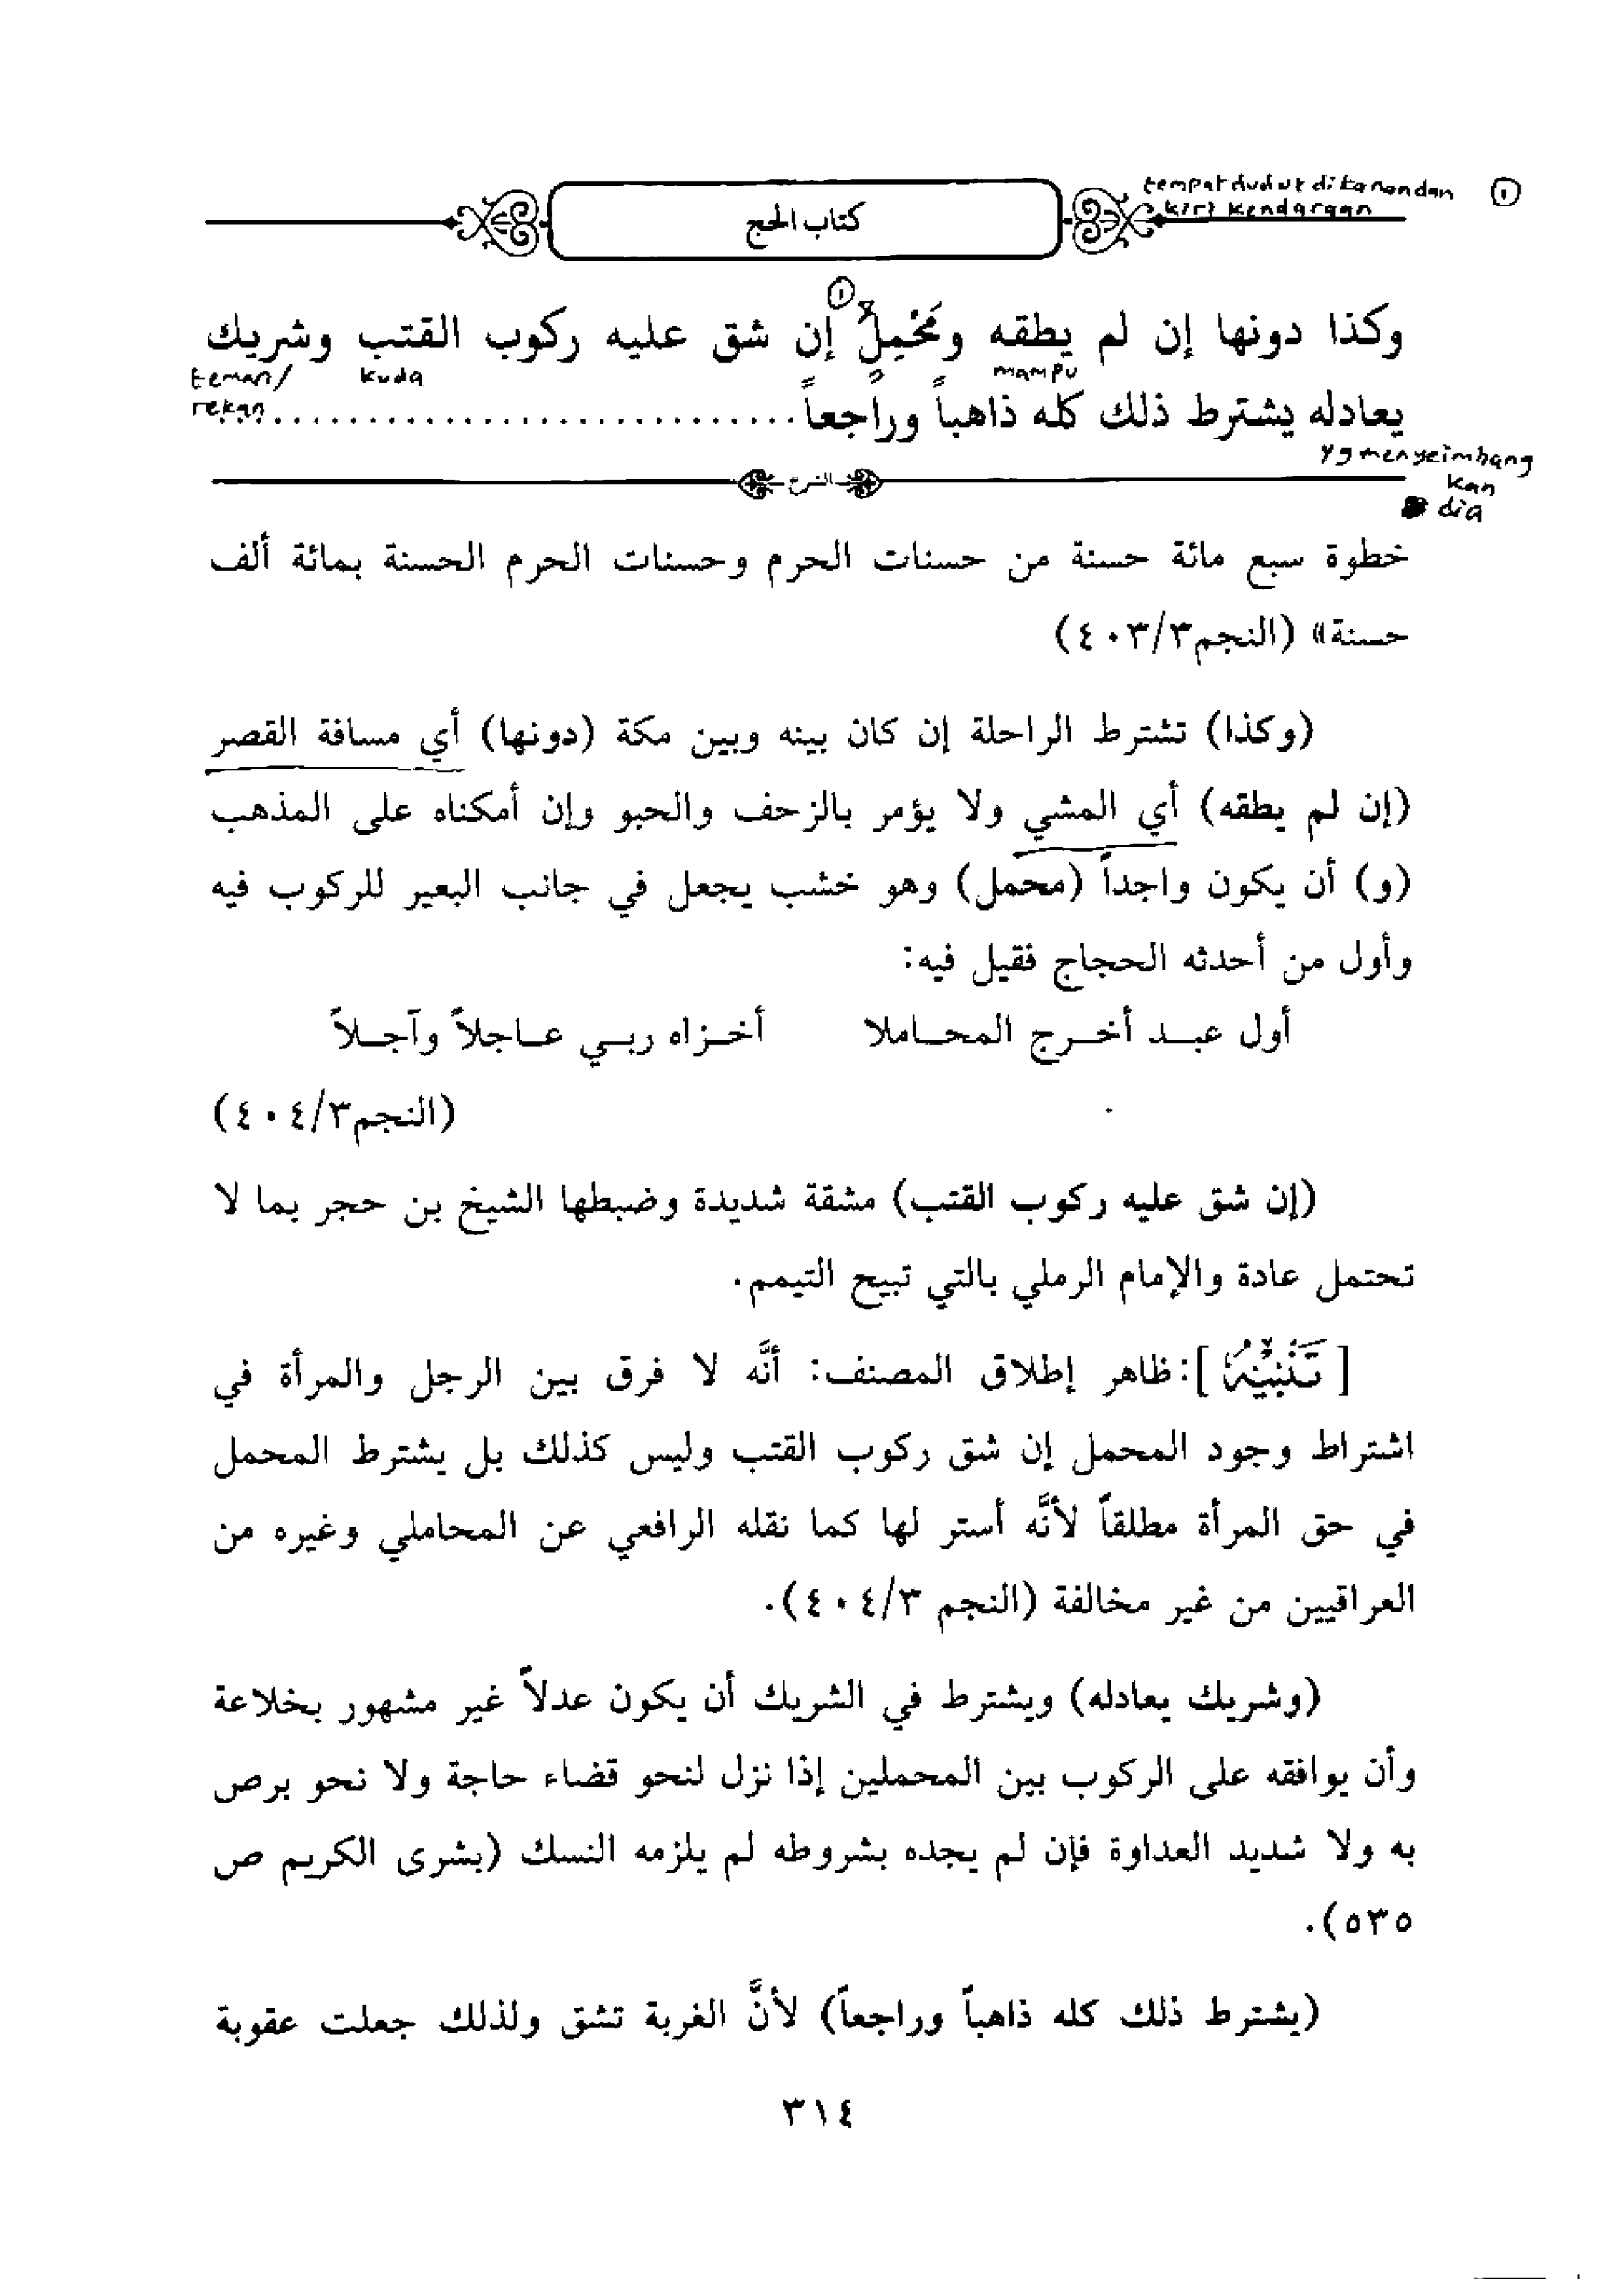 tempat duduk di kanan dan ①
kiri kendaraan
كتاب الحج
①
وكذا دونها إن لم يطقه ومَحْمِلٌ إن شق عليه ركوب القتب وشريك
mampu kuda teman/
rekan
يعادله يشترط ذلك كله ذاهباً وراجعاً..............................
yg menyeimbang
kan
dia
الشرح
خطوة سبع مائة حسنة من حسنات الحرم وحسنات الحرم الحسنة بمائة ألف
حسنة» (النجم٤٠٣/٣)
(وكذا) تشترط الراحلة إن كان بينه وبين مكة (دونها) أي مسافة القصر
(إن لم يطقه) أي المشي ولا يؤمر بالزحف والحبو وإن أمكناه على المذهب
(و) أن يكون واجداً (محمل) وهو خشب يجعل في جانب البعير للركوب فيه
وأول من أحدثه الحجاج فقيل فيه:
أول عبـد أخـرج المحـاملا أخـزاه ربـي عـاجلاً وآجـلاً
(النجم٤٠٤/٣)
(إن شق عليه ركوب القتب) مشقة شديدة وضبطها الشيخ بن حجر بما لا
تحتمل عادة والإمام الرملي بالتي تبيح التيمم.
[تَنْبِيْهٌ]: ظاهر إطلاق المصنف: أنَّه لا فرق بين الرجل والمرأة في
اشتراط وجود المحمل إن شق ركوب القتب وليس كذلك بل يشترط المحمل
في حق المرأة مطلقاً لأنَّه أستر لها كما نقله الرافعي عن المحاملي وغيره من
العراقيين من غير مخالفة (النجم ٤٠٤/٣).
(وشريك يعادله) ويشترط في الشريك أن يكون عدلاً غير مشهور بخلاعة
وأن يوافقه على الركوب بين المحملين إذا نزل لنحو قضاء حاجة ولا نحو برص
به ولا شديد العداوة فإن لم يجده بشروطه لم يلزمه النسك (بشرى الكريم ص
٥٣٥).
(يشترط ذلك كله ذاهباً وراجعاً) لأنَّ الغربة تشق ولذلك جعلت عقوبة
٣١٤